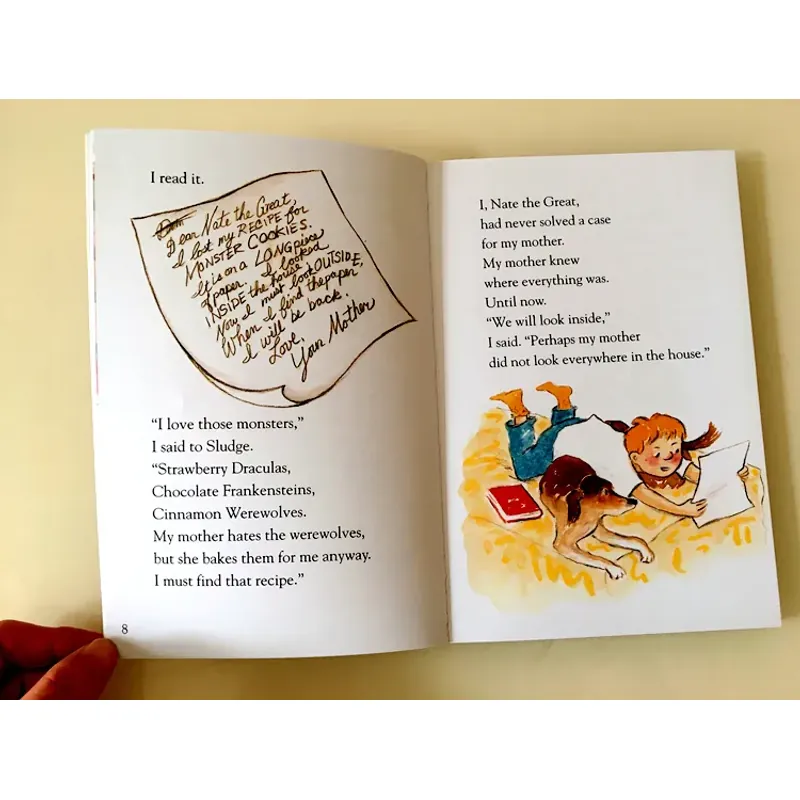 I read it.
Dear Nate the Great,
I lost my RECIPE for
MONSTER COOKIES.
It is on a LONG piece
of paper. I looked
INSIDE the house.
Now I must look OUTSIDE.
When I find the paper
I will be back.
Love,
Your Mother
“I love those monsters,”
I said to Sludge.
“Strawberry Draculas,
Chocolate Frankensteins,
Cinnamon Werewolves.
My mother hates the werewolves,
but she bakes them for me anyway.
I must find that recipe.”
8
I, Nate the Great,
had never solved a case
for my mother.
My mother knew
where everything was.
Until now.
“We will look inside,”
I said. “Perhaps my mother
did not look everywhere in the house.”